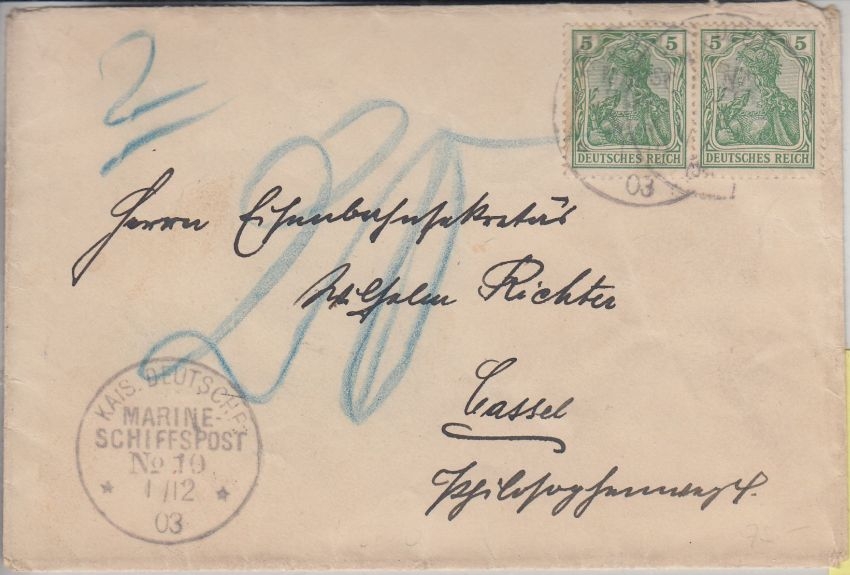 2
20
5 5 5 5
DEUTSCHES REICH DEUTSCHES REICH
03
Herrn Eisenbahnsekretär
Wilhelm Richter
Cassel
Philosophenweg
KAIS. DEUTSCHE
MARINE-
SCHIFFSPOST
No 10
1/12
03